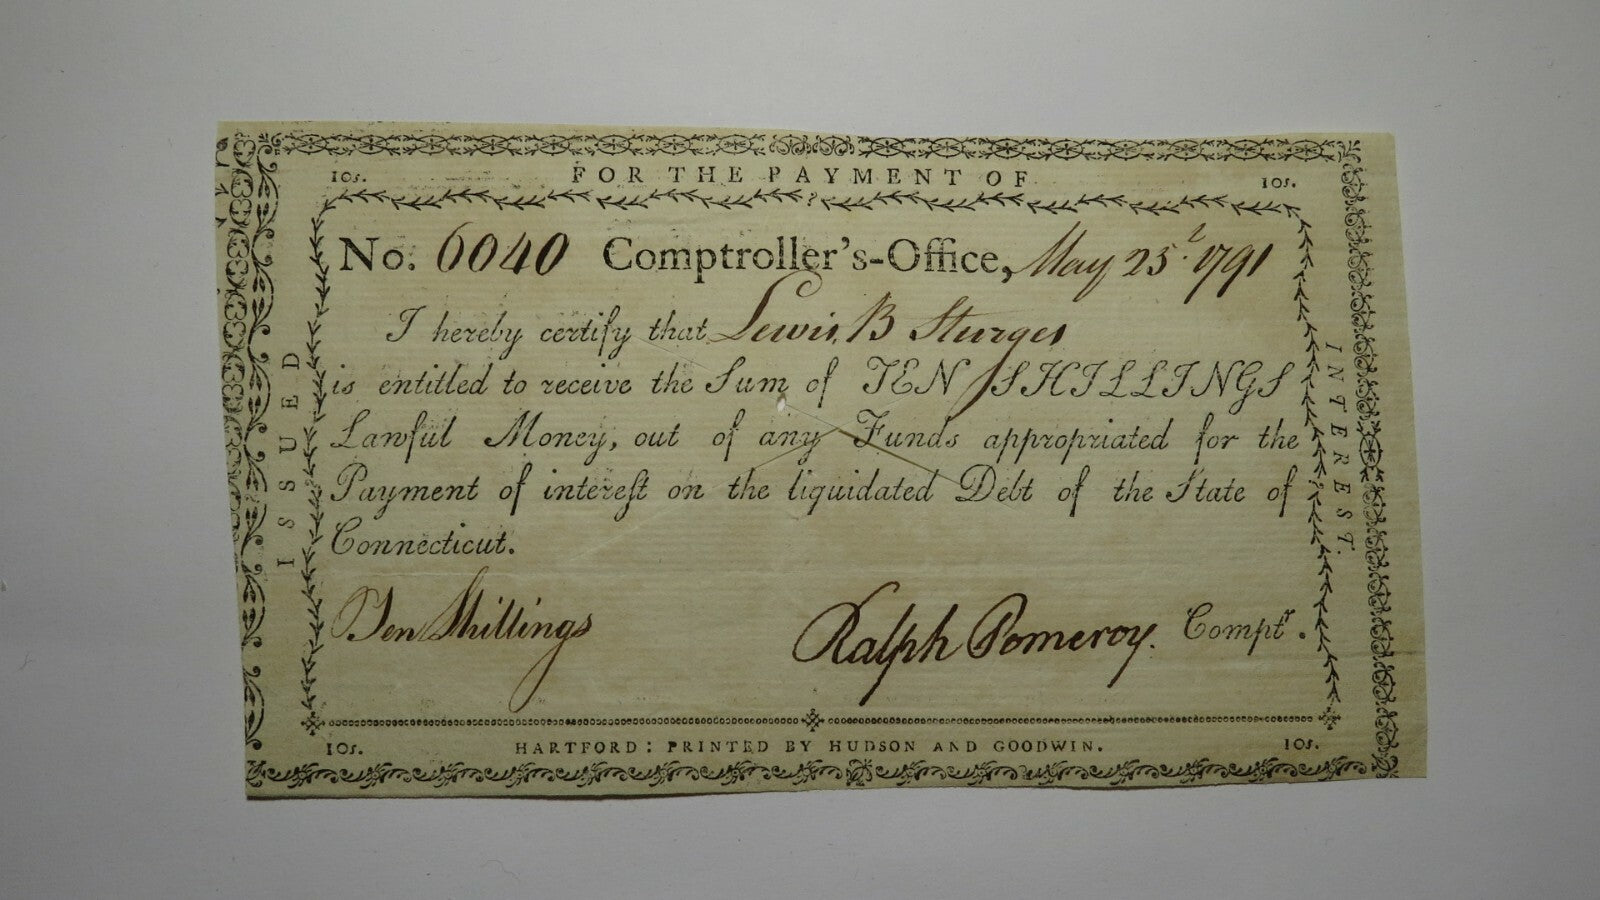 10s. FOR THE PAYMENT OF 10s.
ISSUED
INTEREST.
No. 6040 Comptroller's-Office, May 25.ᵗ 1791
I hereby certify that Lewis B Sturges
is entitled to receive the Sum of TEN SHILLINGS
Lawful Money, out of any Funds appropriated for the
Payment of intereſt on the liquidated Debt of the State of
Connecticut.
Ten Shillings
Ralph Pomeroy. Comptʳ.
10s. HARTFORD: PRINTED BY HUDSON AND GOODWIN. 10s.